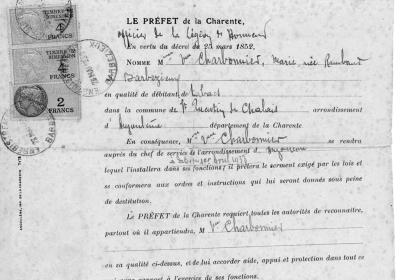 TIMBRE DE DIMENSION
4
FRANCS
TIMBRE DE DIMENSION
4
FRANCS
2
FRANCS
LE PRÉFET de la Charente,
officier de la Légion d'Honneur
En vertu du décret du 25 mars 1852,
NOMME Mme Vve Charbonnier, Marie, née Rimbaud
Barbezieux
en qualité de débitant de tabacs
dans la commune de St Quentin de Chalais arrondissement
d'Angoulême département de la Charente
En conséquence, Mme Vve Charbonnier se rendra
auprès du chef de service de l'arrondissement d'Angoulême
lequel l'installera dans ses fonctions, il prêtera le serment exigé par les lois et
se conformera aux ordres et instructions qui lui seront donnés sous peine
de destitution.
LE PRÉFET de la Charente requiert toutes les autorités de reconnaître,
partout où il appartiendra, M Vve Charbonnier
en sa qualité ci-dessus, et de lui accorder aide, appui et protection dans tout ce
l'exercice de ses fonctions.